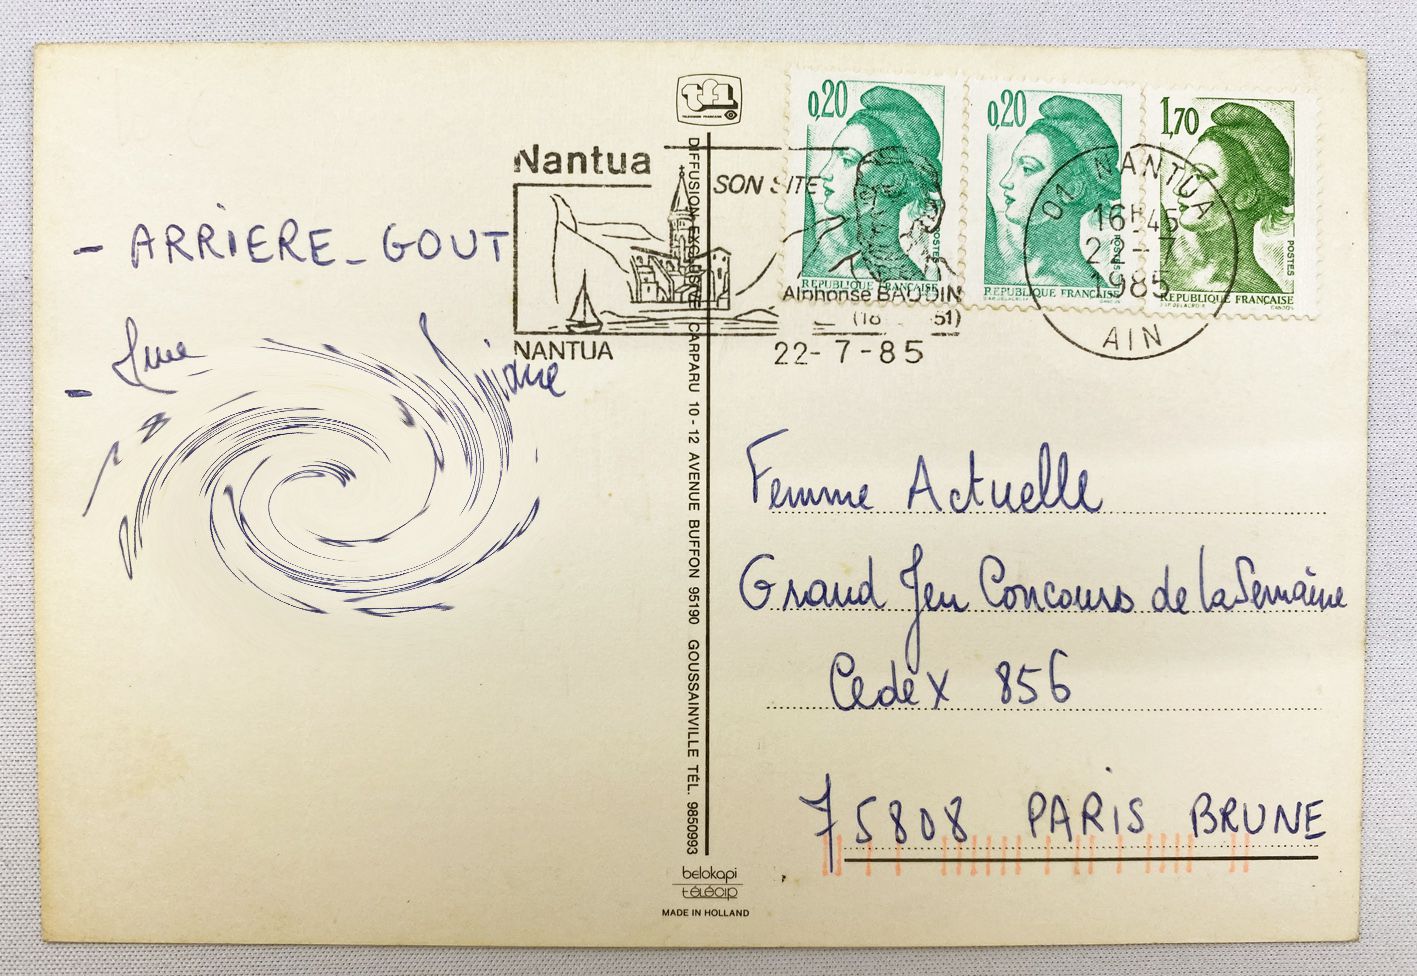 tf1
TELEVISION FRANCAISE
Nantua
SON SITE
NANTUA
Alphonse BAUDIN
(18 51)
22-7-85
0,20
POSTES
REPUBLIQUE FRANÇAISE
0,20
POSTES
REPUBLIQUE FRANÇAISE
1,70
POSTES
REPUBLIQUE FRANÇAISE
01 NANTUA
16H45
22-7
1985
AIN
- ARRIERE_GOUT
- Mme
DIFFUSION EXCLUSIVE CARPARU 10-12 AVENUE BUFFON 95190 GOUSSAINVILLE TÉL. 9850993
Femme Actuelle
Grand Jeu Concours de la Semaine
Cedex 856
75808 PARIS BRUNE
belokapi
télécip
MADE IN HOLLAND